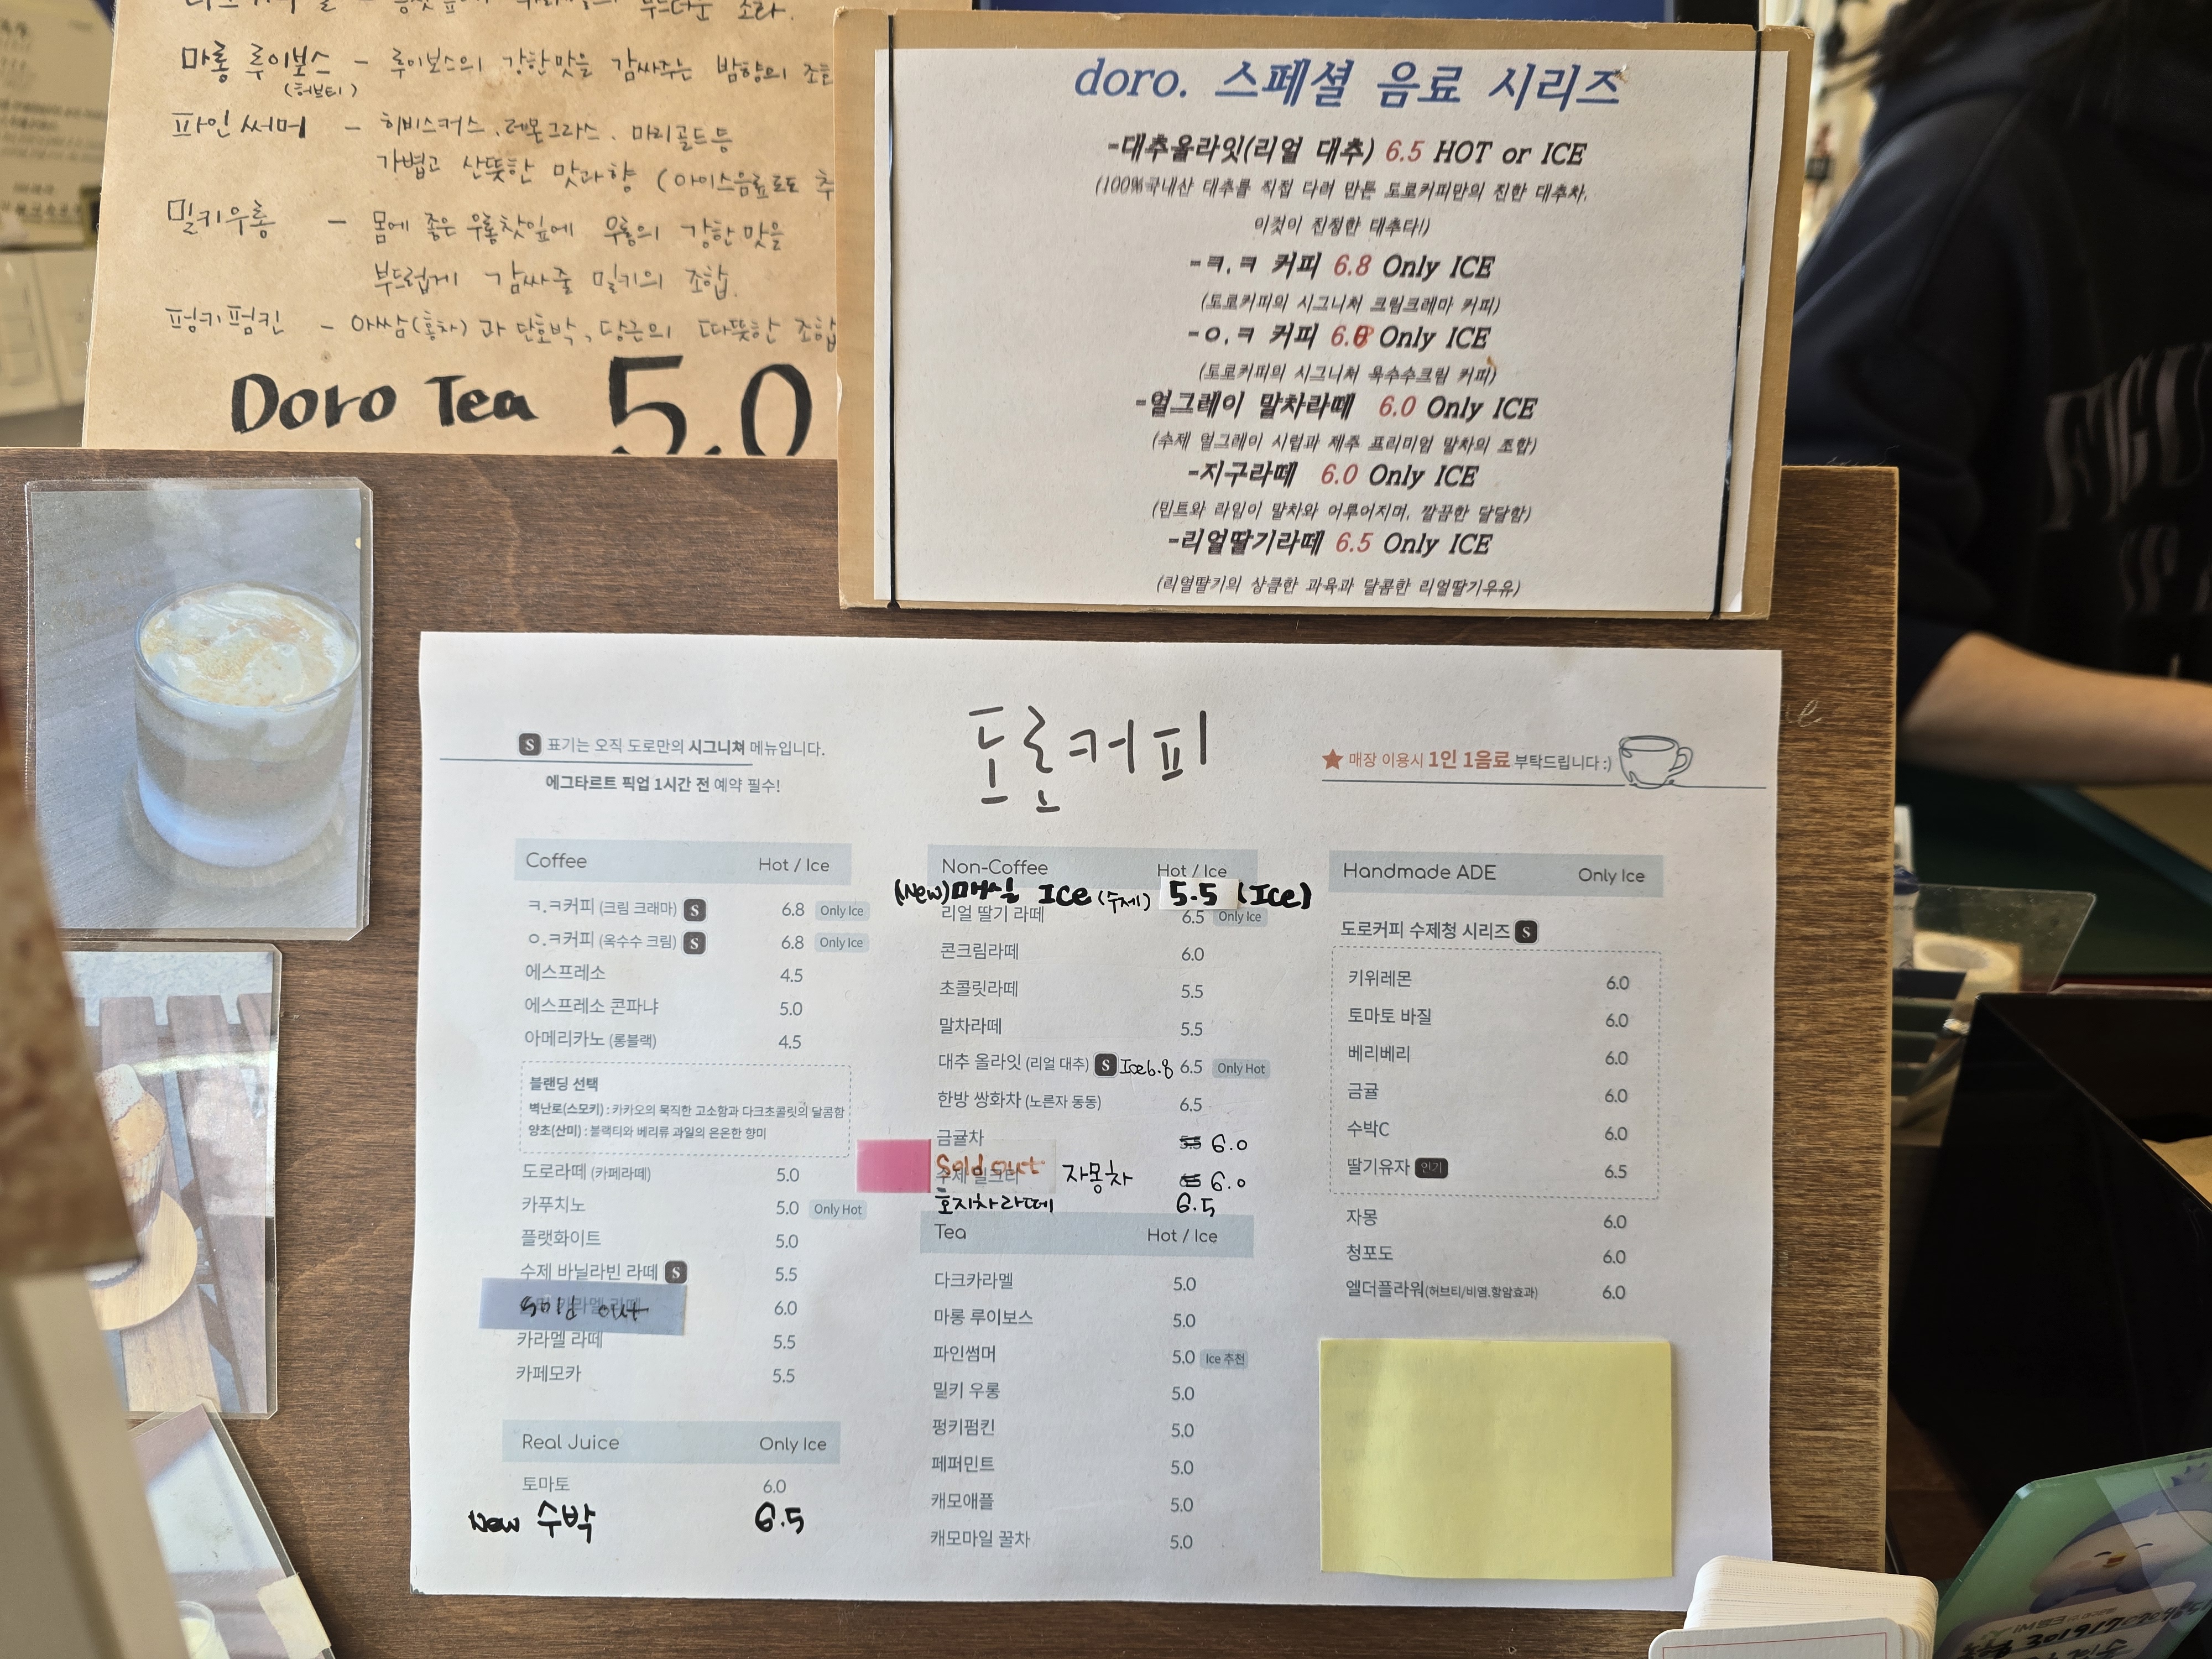 마롱 루이보스 - 루이보스의 강한맛을 감싸주는 밤향의
(허브티)
파인써머 - 히비스커스, 레몬그라스, 마리골드등
가볍고 산뜻한 맛과향 (아이스음료로도 추
밀키우롱 - 몸에 좋은 우롱찻잎에 우롱의 강한맛을
부드럽게 감싸줄 밀키의 조합.
펑키펌킨 - 아쌈(홍차)과 단호박, 당근의 따뜻한 조합
Doro Tea 5.0
doro. 스페셜 음료 시리즈
-대추올라잇(리얼 대추) 6.5 HOT or ICE
(100%국내산 대추를 직접 다려 만든 도로커피만의 진한 대추차,
이것이 진정한 대추다!)
-ㅋ.ㅋ 커피 6.8 Only ICE
(도로커피의 시그니처 크림크레마 커피)
-ㅇ.ㅋ 커피 6.8 Only ICE
(도로커피의 시그니처 옥수수크림 커피)
-얼그레이 말차라떼 6.0 Only ICE
(수제 얼그레이 시럽과 제주 프리미엄 말차의 조합)
-지구라떼 6.0 Only ICE
(민트와 라임이 말차와 어루어지며, 깔끔한 달달함)
-리얼딸기라떼 6.5 Only ICE
(리얼딸기의 상큼한 과육과 달콤한 리얼딸기우유)
S 표기는 오직 도로만의 시그니쳐 메뉴입니다.
에그타르트 픽업 1시간 전 예약 필수!
도로커피
★ 매장 이용시 1인 1음료 부탁드립니다 :)
Coffee Hot / Ice
ㅋ.ㅋ커피 (크림 크래마) S 6.8 Only Ice
ㅇ.ㅋ커피 (옥수수 크림) S 6.8 Only Ice
에스프레소 4.5
에스프레소 콘파냐 5.0
아메리카노 (롱블랙) 4.5
블랜딩 선택
벽난로(스모키) : 카카오의 묵직한 고소함과 다크초콜릿의 달콤함
양초(산미) : 블랙티와 베리류 과일의 은은한 향미
도로라떼 (카페라떼) 5.0
카푸치노 5.0 Only Hot
플랫화이트 5.0
수제 바닐라빈 라떼 S 5.5
Sold out 6.0
카라멜 라떼 5.5
카페모카 5.5
Real Juice Only Ice
토마토 6.0
New 수박 6.5
Non-Coffee Hot / Ice
(New) 매실 Ice (수제) 5.5 (Ice)
리얼 딸기 라떼 6.5 Only Ice
콘크림라떼 6.0
초콜릿라떼 5.5
말차라떼 5.5
대추 올라잇 (리얼 대추) S Ice6.8 6.5 Only Hot
한방 쌍화차 (노른자 동동) 6.5
금귤차 5.5 6.0
Sold out
수제 밀크티 자몽차 6.0
호지차라떼 6.5
Tea Hot / Ice
다크카라멜 5.0
마롱 루이보스 5.0
파인썸머 5.0 Ice 추천
밀키 우롱 5.0
펑키펌킨 5.0
페퍼민트 5.0
캐모애플 5.0
캐모마일 꿀차 5.0
Handmade ADE Only Ice
도로커피 수제청 시리즈 S
키위레몬 6.0
토마토 바질 6.0
베리베리 6.0
금귤 6.0
수박C 6.0
딸기유자 인기 6.5
자몽 6.0
청포도 6.0
엘더플라워(허브티/비염.항암효과) 6.0